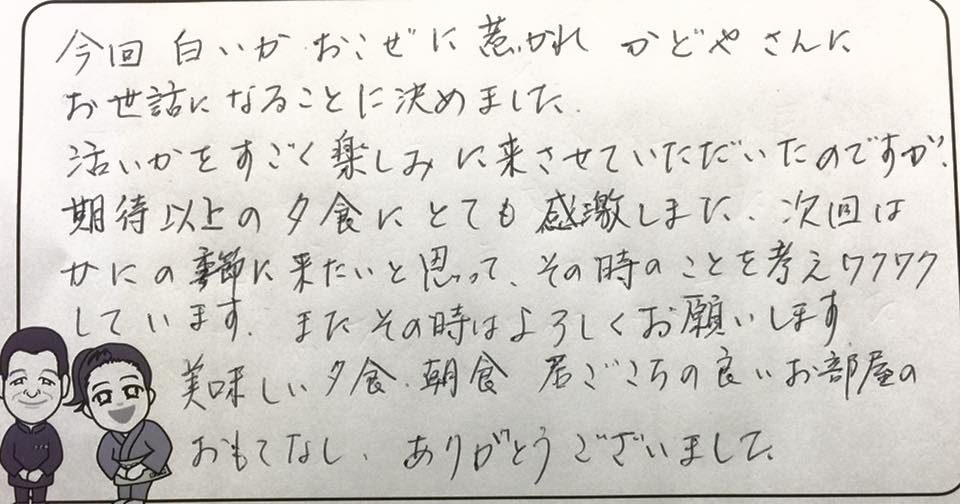 今回 白いか おこぜに惹かれ かどやさんに
お世話になることに決めました.
活いかをすごく楽しみに来させていただいたのですが、
期待以上の夕食にとても感激しました、次回は
かにの季節に来たいと思って、その時のことを考えワクワク
しています. またその時はよろしくお願いします
美味しい夕食、朝食 居ごこちの良いお部屋の
おもてなし、ありがとうございました